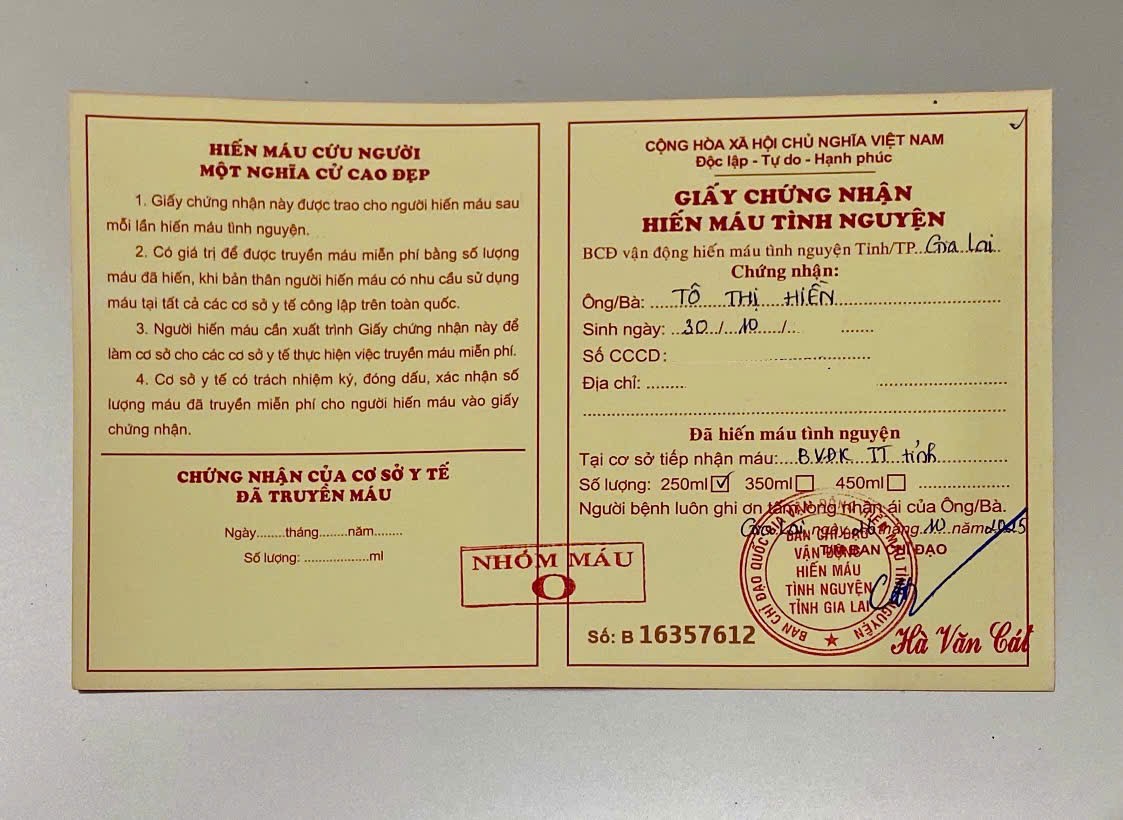 HIẾN MÁU CỨU NGƯỜI
MỘT NGHĨA CỬ CAO ĐẸP
1. Giấy chứng nhận này được trao cho người hiến máu sau
mỗi lần hiến máu tình nguyện.
2. Có giá trị để được truyền máu miễn phí bằng số lượng
máu đã hiến, khi bản thân người hiến máu có nhu cầu sử dụng
máu tại tất cả các cơ sở y tế công lập trên toàn quốc.
3. Người hiến máu cần xuất trình Giấy chứng nhận này để
làm cơ sở cho các cơ sở y tế thực hiện việc truyền máu miễn phí.
4. Cơ sở y tế có trách nhiệm ký, đóng dấu, xác nhận số
lượng máu đã truyền miễn phí cho người hiến máu vào giấy
chứng nhận.
CHỨNG NHẬN CỦA CƠ SỞ Y TẾ
ĐÃ TRUYỀN MÁU
Ngày........tháng.......năm........
Số lượng: ...................ml
NHÓM MÁU
O
CỘNG HÒA XÃ HỘI CHỦ NGHĨA VIỆT NAM
Độc lập - Tự do - Hạnh phúc
GIẤY CHỨNG NHẬN
HIẾN MÁU TÌNH NGUYỆN
BCĐ vận động hiến máu tình nguyện Tỉnh/TP...Gia Lai..
Chứng nhận:
Ông/Bà: ....TÔ THỊ HIỀN
Sinh ngày: ...30.../...10..../..
Số CCCD:
Địa chỉ: ........
Đã hiến máu tình nguyện
Tại cơ sở tiếp nhận máu:....BVĐK TT tỉnh
Số lượng: 250ml ☑ 350ml ☐ 450ml ☐
Người bệnh luôn ghi ơn tấm lòng nhân ái của Ông/Bà.
Gia Lai, ngày 26 tháng 10 năm 2025
TM BAN CHỈ ĐẠO
BAN CHỈ ĐẠO QUỐC GIA VẬN ĐỘNG HIẾN MÁU TÌNH NGUYỆN
BAN CHỈ ĐẠO
VẬN ĐỘNG
HIẾN MÁU
TÌNH NGUYỆN
TỈNH GIA LAI
Số: B 16357612
Hà Văn Cát